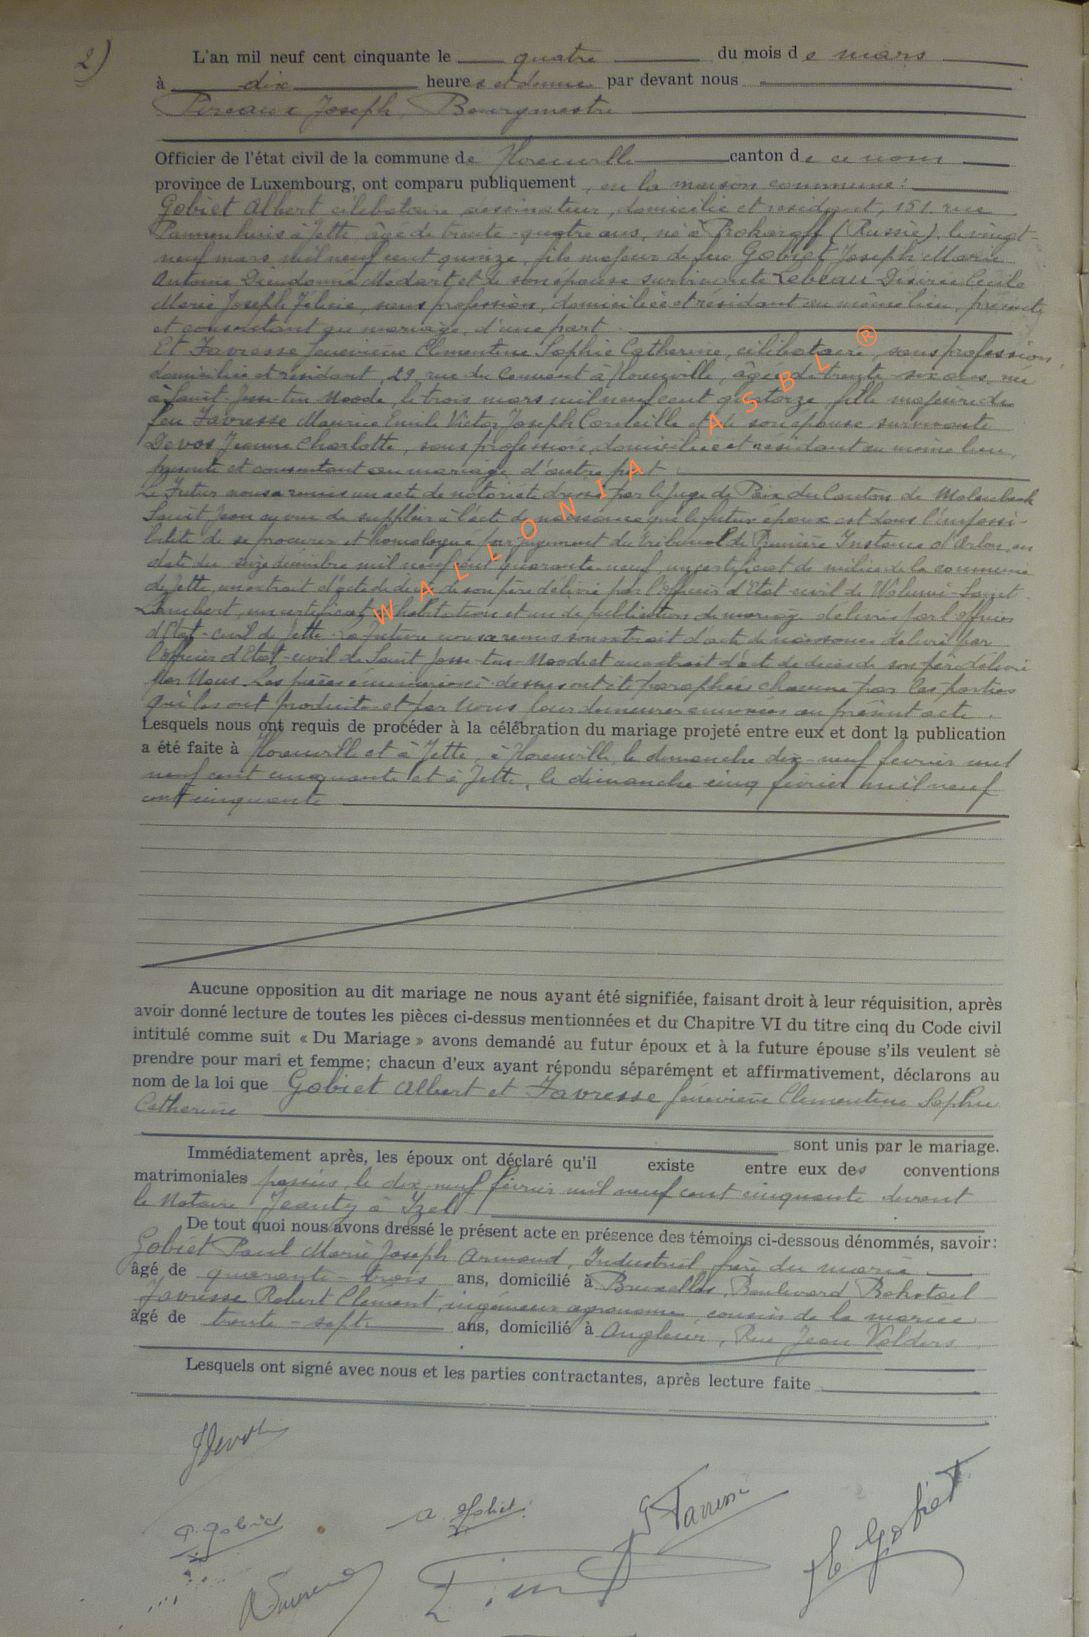 2)
L'an mil neuf cent cinquante le quatre du mois de mars
à dix heures et demie par devant nous
Pireaux Joseph, Bourgmestre
Officier de l'état civil de la commune de canton de ce nom
province de Luxembourg, ont comparu publiquement, en la maison commune:
Gobiet Albert célibataire dessinateur, domicilié et résidant, 151 rue
à Jette âgé de trente-quatre ans, né à (Russie), le vingt-
neuf mars mil neuf cent quinze, fils majeur de feu Gobiet Joseph Marie
Antoine Dieudonné Médart et de son épouse survivante Lebeau Désirée Cécile
Marie Joseph Félicie, sans profession, domiciliée et résidant au même lieu, présente
et consentant au mariage, d'une part
Et Favresse Geneviève Clémentine Sophie Catherine, célibataire, sans profession
domiciliée et résidant, 29 rue du Couvent à âgée de trente-six ans, née
à Saint-Josse-ten-Noode, le trois mars mil neuf cent quatorze, fille majeure de
feu Favresse Maurice Emile Victor Joseph et de son épouse survivante
Devos Jeanne Charlotte, sans profession, domiciliée et résidant au même lieu,
présente et consentant au mariage, d'autre part
Le futur nous a remis un acte de notoriété dressé par le Juge de Paix du Canton de Molenbeek
Saint Jean en vue de suppléer à l'acte de naissance que le futur époux est dans l'impossi-
bilité de se procurer et homologué par jugement du tribunal de Première Instance d'Arlon, en
date du seize décembre mil neuf cent quarante-neuf, un certificat de milice de la commune
de Jette, un extrait d'acte de décès de son père délivré par l'officier d'Etat-civil de Woluwé-Saint-
Lambert, un certificat d'habitation et un de publication de mariage délivrés par l'officier
d'Etat-civil de Jette. La future nous a remis son extrait d'acte de naissance délivré par
l'officier d'Etat-civil de Saint Josse-ten-Noode et un extrait d'acte de décès de son père délivré
par Nous. Les pièces énumérées ci-dessus ont été paraphées chacune par les parties
qui les ont produites et par Nous pour demeurer annexées au présent acte.
Lesquels nous ont requis de procéder à la célébration du mariage projeté entre eux et dont la publication
a été faite à et à Jette, à le dimanche dix-neuf février mil
neuf cent cinquante et à Jette, le dimanche cinq février mil neuf
cent cinquante
Aucune opposition au dit mariage ne nous ayant été signifiée, faisant droit à leur réquisition, après
avoir donné lecture de toutes les pièces ci-dessus mentionnées et du Chapitre VI du titre cinq du Code civil
intitulé comme suit « Du Mariage » avons demandé au futur époux et à la future épouse s'ils veulent se
prendre pour mari et femme; chacun d'eux ayant répondu séparément et affirmativement, déclarons au
nom de la loi que Gobiet Albert et Favresse Geneviève Clémentine Sophie
Catherine
sont unis par le mariage.
Immédiatement après, les époux ont déclaré qu'il existe entre eux des conventions
matrimoniales passées le dix-neuf février mil neuf cent cinquante devant
le Notaire Jeanty à Izel
De tout quoi nous avons dressé le présent acte en présence des témoins ci-dessous dénommés, savoir:
Gobiet Paul Marie Joseph Armand, Industriel, frère du marié
âgé de quarante-trois ans, domicilié à Bruxelles, Boulevard
Favresse Robert Clément, ingénieur agronome, cousin de la mariée
âgé de trente-sept ans, domicilié à Angleur, Rue Jean Volders
Lesquels ont signé avec nous et les parties contractantes, après lecture faite
JDevos
P. Gobiet
A. Gobiet
G Favresse
Gobiet
WALLONIA ASBL ®